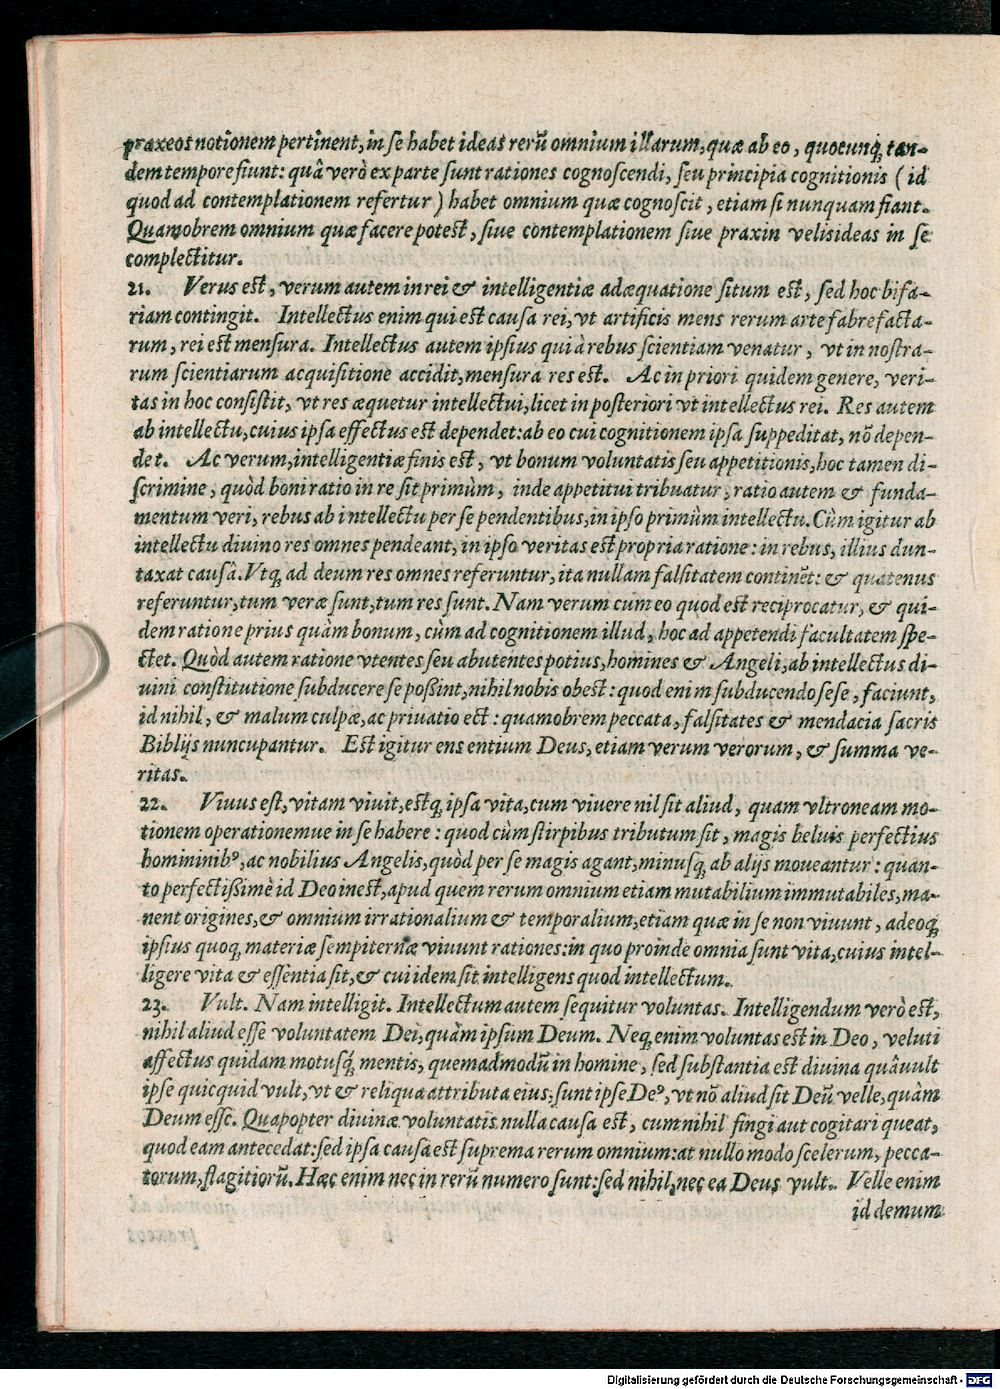 praxeos notionem pertinent, in se habet ideas rerũ omnium illarum, quæ ab eo, quocunq́; tan-
dem tempore fiunt: quâ verò ex parte sunt rationes cognoscendi, seu principia cognitionis (id
quod ad contemplationem refertur) habet omnium quæ cognoscit, etiam si nunquam fiant.
Quamobrem omnium quæ facere potest, siue contemplationem siue praxin velis ideas in se
complectitur.
21. Verus est, verum autem in rei & intelligentiæ adæquatione situm est, sed hoc bifa-
riam contingit. Intellectus enim qui est causa rei, vt artificis mens rerum arte fabrefacta-
rum, rei est mensura. Intellectus autem ipsius qui à rebus scientiam venatur, vt in nostra-
rum scientiarum acquisitione accidit, mensura res est. Ac in priori quidem genere, veri-
tas in hoc consistit, vt res æquetur intellectui, licet in posteriori vt intellectus rei. Res autem
ab intellectu, cuius ipsa effectus est dependet: ab eo cui cognitionem ipsa suppeditat, nõ depen-
det. Ac verum, intelligentiæ finis est, vt bonum voluntatis seu appetitionis, hoc tamen di-
scrimine, quòd boni ratio in re sit primùm, inde appetitui tribuatur, ratio autem & funda-
mentum veri, rebus ab intellectu per se pendentibus, in ipso primùm intellectu. Cùm igitur ab
intellectu diuino res omnes pendeant, in ipso veritas est propria ratione: in rebus, illius dun-
taxat causâ. Vtq; ad deum res omnes referuntur, ita nullam falsitatem continẽt: & quatenus
referuntur, tum veræ sunt, tum res sunt. Nam verum cum eo quod est reciprocatur, & qui-
dem ratione prius quàm bonum, cùm ad cognitionem illud, hoc ad appetendi facultatem spe-
ctet. Quòd autem ratione vtentes seu abutentes potius, homines & Angeli, ab intellectus di-
uini constitutione subducere se poßint, nihil nobis obest: quod enim subducendo sese, faciunt,
id nihil, & malum culpæ, ac priuatio est: quamobrem peccata, falsitates & mendacia sacris
Biblijs nuncupantur. Est igitur ens entium Deus, etiam verum verorum, & summa ve-
ritas.
22. Viuus est, vitam viuit, estq; ipsa vita, cum viuere nil sit aliud, quam vltroneam mo-
tionem operationemue in se habere: quod cùm stirpibus tributum sit, magis beluis perfectius
homininibꝰ, ac nobilius Angelis, quòd per se magis agant, minusq; ab alijs moueantur: quan-
to perfectißimè id Deo inest, apud quem rerum omnium etiam mutabilium immutabiles, ma-
nent origines, & omnium irrationalium & temporalium, etiam quæ in se non viuunt, adeoq;
ipsius quoq; materiæ sempiternæ viuunt rationes: in quo proinde omnia sunt vita, cuius intel-
ligere vita & essentia sit, & cui idem sit intelligens quod intellectum.
23. Vult. Nam intelligit. Intellectum autem sequitur voluntas. Intelligendum verò est,
nihil aliud esse voluntatem Dei, quàm ipsum Deum. Neq; enim voluntas est in Deo, veluti
affectus quidam motusq́; mentis, quemadmodũ in homine, sed substantia est diuina quâ vult
ipse quicquid vult, vt & reliqua attributa eius: sunt ipse Deꝰ, vt nõ aliud sit Deũ velle, quàm
Deum esse. Quapopter diuinæ voluntatis nulla causa est, cum nihil fingi aut cogitari queat,
quod eam antecedat: sed ipsa causa est suprema rerum omnium: at nullo modo scelerum, pecca-
torum, flagitiorũ. Hæc enim nec in rerũ numero sunt: sed nihil, nec ea Deus vult. Velle enim
id demum
Digitalisierung gefördert durch die Deutsche Forschungsgemeinschaft - DFG